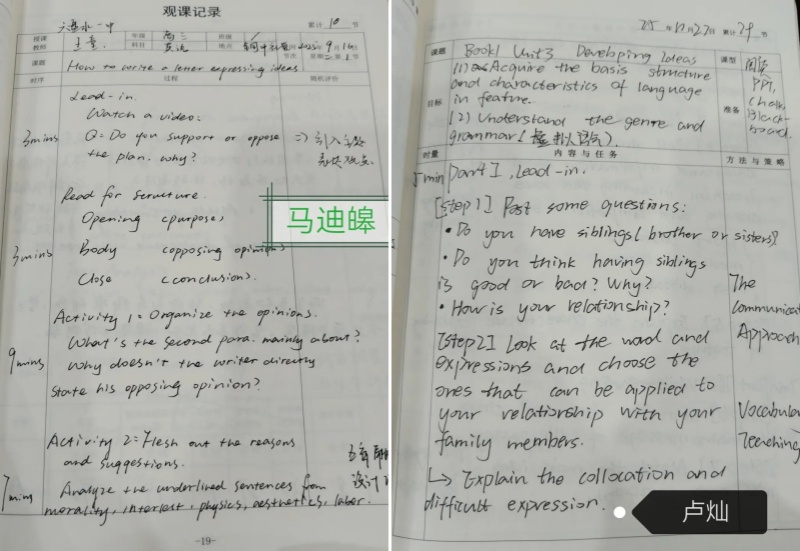 观课记录
涟水一中
累计 10 节
授课教师
年级 高三
科目 英语
班级
地点
课题 How to write a letter expressing ideas
时序 过程 随机评价
Lead-in.
Watch a video:
3mins Q= Do you support or oppose => 引入主题
the plan. why?
Read for structure.
Opening (purpose)
3mins Body (opposing opinions)
Close (conclusion).
Activity 1= Organize the opinions.
What's the second para. mainly about?
9mins Why doesn't the writer directly
state his opposing opinion?
Activity 2= Flesh out the reasons
and suggestions.
7mins Analyze the underlined sentences from
morality, interest, physics, aesthetics, labor.
-19-
马迪皞
25 年 11 月 27 日 累计 29 节
课题 Book1 Unit3 Developing Ideas 课型 阅读
目标 (1) Acquire the basis structure
and characteristics of language
in feature.
(2) Understand the genre and
grammar (虚拟语气).
准备 PPT,
chalk,
Black-
board.
时量 内容与任务 方法与策略
5min Part I, Lead-in.
[Step1] Post some questions:
• Do you have siblings (brother or sisters)?
• Do you think having siblings
is good or bad? Why?
• How is your relationship?
The
Communicat
Approach
[Step2] Look at the word and
expressions and choose the
ones that can be applied to
your relationship with your
family members.
Vocabular
Teaching
↳ Explain the collocation and
difficult expression.
卢灿